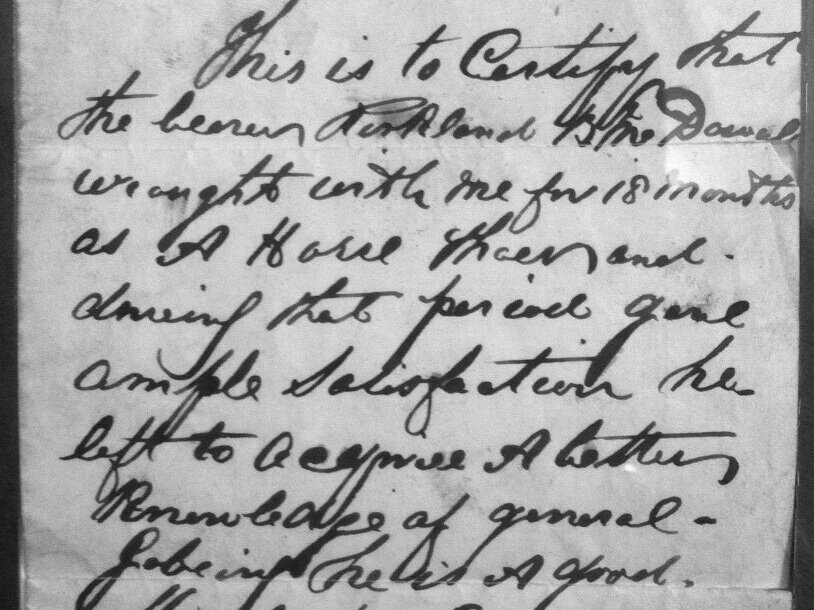 This is to Certify that
the bearer Kirkland B Mc Dowal
wrought with me for 18 months
as A Horse Shoer and -
during that period gave
ample Satisfaction he -
left to Acquire A better
Knowledge of general -
Jobeing he is A good -